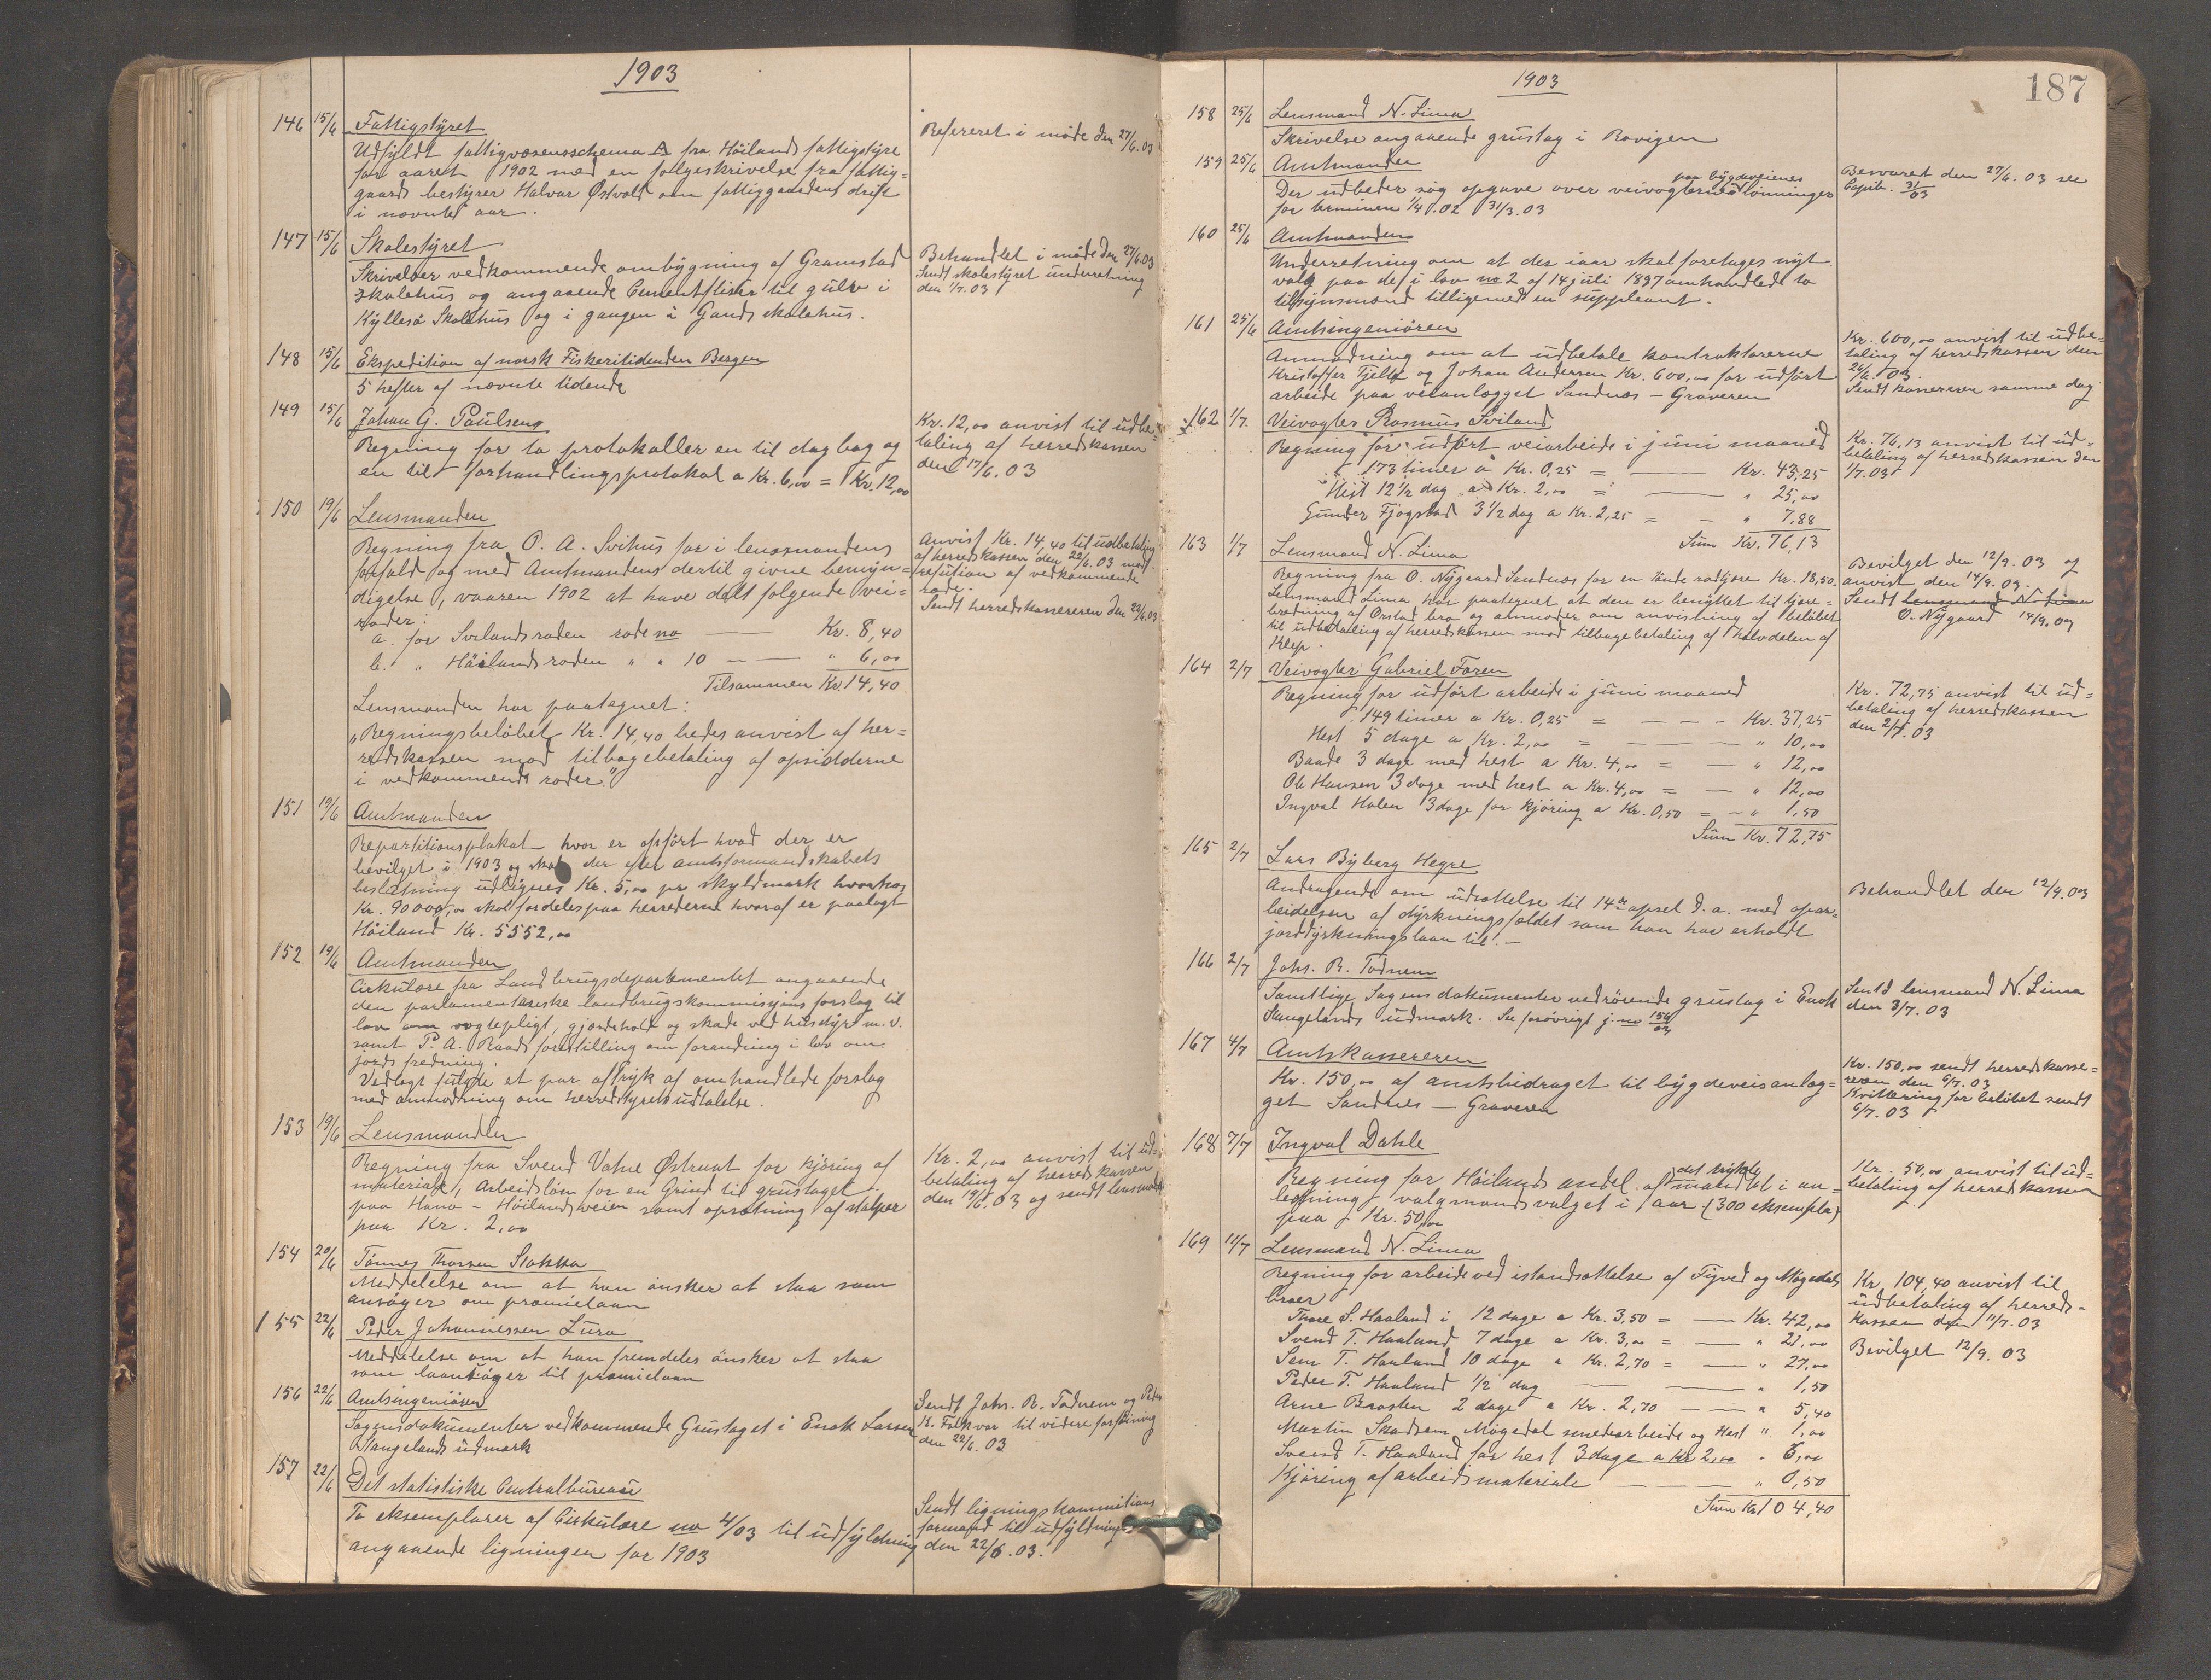 1903
146 15/6 Fattigstyret
Udfyldt fattigvæsensschema A fra Höilands fattigstyre
for aaret 1902 med en følgeskrivelse fra fattig=
gaards bestyrer Halvar Østvold om fattiggaardens drift
i nævnte aar.
Refereret i möde den 27/6. 03
147 15/6 Skolestyret
Skrivelser vedkommende ombygning af Gramstad
skolehus og angaaende Cementfliser til gulv i
Kyllesö Skolehus og i gangen i Gands skolehus.
Behandlet i möde den 27/6 03
Sendt skolestyret underretning
den 1/7. 03
148 15/6 Ekspedition af norsk Fiskeritidende Bergen
5 hefter af nævnte tidende
149 15/6 Johan G. Paulsen
Regning for to protokoller en til dagbog og
en til forhandlingsprotokol a Kr. 6,00 = Kr. 12,00
Kr. 12,00 anvist til udbe=
taling af herredskassen
den 17/6. 03
150 19/6 Lensmanden
Regning fra O. A. Svihus for i lensmandens
forfald og med Amtmandens dertil givne bemyn=
digelse, vaaren 1902 at have delt følgende vei=
roder:
a. for Svilandsroden rode no — Kr. 8,40
b. " Höilandsroden " " 10 — — " 6,00
Tilsammen Kr. 14,40
Lensmanden har paategnet:
"Regningsbelöbet Kr. 14,40 bedes anvist af her=
redskassen mod tilbagebetaling af opsidderne
i vedkommende roder."
Anvist Kr. 14,40 til udbetaling
af herredskassen den 22/6. 03 mod
refution af vedkommende
rode.
Sendt herredskassereren den 22/6. 03
151 19/6 Amtmanden
Repartitionsplakat hvor er opført hvad der er
bevilget i 1903 og skal der efter amtsformandskabets
beslutning udlignes Kr. 5,00 pr skyldmark hvorhos
Kr. 90000,00 skal fordeles paa herrederne hvoraf er paalagt
Höiland Kr. 5552,00
152 19/6 Amtmanden
Cirkulære fra Landbrugsdepartementet angaaende
den parlamentariske landbrugskommisjons forslag til
lov om vogtepligt, gjærdehold og skade ved husdyr m. v.
samt P. A. Raads forestilling om forandring i lov om
jords fredning.
Vedlagt fulgte et par aftryk af omhandlede forslag
med anmodning om herredsstyrets udtalelse.
153 19/6 Lensmanden
Regning fra Svend Vatne Østraat for kjøring af
materiale, Arbeidsløn for en Grind til grustaget
paa Hana - Höilandsveien samt opsætning af stolper
paa Kr. 2,00
Kr. 2,00 anvist til ud=
betaling af herredskassen
den 19/6. 03 og sendt lensmanden
154 20/6 Tönnes Thorsen Stokka
Meddelelse om at han ønsker at staa som
ansøger om præmielaan
155 22/6 Peder Johannessen Lura
Meddelelse om at han fremdeles ønsker at staa
som laansøger til præmielaan
156 22/6 Amtsingeniören
Sagens dokumenter vedkommende Grustaget i Enok Larsen
Stangelands udmark
Sendt Johs. R. Todnem og Peder
den 22/6. 03
157 22/6 Det statistiske Centralbureau
To eksemplarer af Cirkulære no 4/03 til udfyldning
angaaende ligningen for 1903
Sendt ligningskommisions
formand til udfyldning
den 22/6. 03.
187
1903
158 25/6 Lensmand N. Lima
Skrivelse angaaende grustag i Rovigen
159 25/6 Amtmanden
paa bygdeveienes
Der udbeder sig opgave over veivogternes lönninger
for terminen 1/4. 02 31/3. 03
Besvaret den 27/6. 03 see
Copib. 31/03
160 25/6 Amtmanden
Underretning om at der iaar skal foretages nyt
valg paa de i lov no 2 af 14 juli 1897 omhandlede to
tilsynsmænd tilligemed en suppleant.
161 25/6 Amtsingeniören
Anmodning om at udbetale kontraktørerne
Kristoffer Tjelta og Johan Andersen Kr. 600,00 for udført
arbeide paa veianlægget Sandnæs — Graveren
Kr. 600,00 anvist til udbe=
taling af herredskassen den
26/6. 03.
Sendt kassereren samme dag
162 1/7. Veivogter Rasmus Sviland
Regning for udført veiarbeide i juni maaned
173 timer a Kr. 0,25 = — Kr. 43,25
Hest 12 1/2 dag a Kr. 2,00 = — " 25,00
Gunder Fjogstad 3 1/2 dag a Kr. 2,25 = — " 7,88
Sum Kr. 76,13
Kr. 76,13 anvist til ud=
betaling af herredskassen den
1/7. 03
163 1/7 Lensmand N. Lima
Regning fra O. Nygaard Sandnæs for en tønde rødtjære Kr. 18,50.
Lensmand Lima har paategnet at den er benyttet til tjære=
bredning af Orstad bro og anmoder om anvisning af beløbet
til udbetaling af herredskassen mod tilbagebetaling af halvdelen af
Klep.
Bevilget den 12/9. 03 og
anvist den 14/9. 03.
Sendt lensmand N. Lima
O. Nygaard 14/9. 03
164 2/7 Veivogter Gabriel Foren
Regning for udført arbeide i juni maaned
149 timer a Kr. 0,25 = — — — Kr. 37,25
Hest 5 dage a Kr. 2,00 = — " 10,00
Baade 3 dage med hest a Kr. 4,00 = — " 12,00
Ole Hansen 3 dage med hest a Kr. 4,00 = — " 12,00
Ingval Holen 3 dage for kjøring a Kr. 0,50 = — " 1,50
Sum Kr. 72,75
Kr. 72,75 anvist til ud=
betaling af herredskassen
den 2/7. 03
165 2/7 Lars Byberg Hegre
Andragende om udsættelse til 14de april d. a. med opar=
beidelsen af dyrkningsfeldet som han har erholdt
jorddyrkningslaan til. —
Behandlet den 12/9. 03
166 2/7 Johs. R. Todnem
Samtlige Sagens dokumenter vedrørende grustag i Enok
Stangelands udmark. Se forövrigt j. no 156/03
Sendt lensmand N. Lima
den 3/7. 03
167 4/7 Amtskassereren
Kr. 150,00 af amtsbidraget til bygdeveisanlæg=
get Sandnes — Graveren
Kr. 150,00 sendt herredskasse=
reren den 6/7. 03
Kvittering for belöbet sendt
6/7. 03
168 7/7 Ingval Dahle
det trykte
Regning for Höilands andel af mandtal i an=
ledning valgmandsvalget i aar (300 eksempla)
paa Kr. 50,00
Kr. 50,00 anvist til ud=
betaling af herredskassen
169 11/7 Lensmand N. Lima
Regning for arbeide ved istandsættelse af Figved og Møgedals
broer
Thore S. Haaland i 12 dage a Kr. 3,50 = — Kr. 42,00
Svend T. Haaland 7 dage a Kr. 3,00 = — " 21,00
Sem T. Haaland 10 dage a Kr. 2,70 = — " 27,00
Peder T. Haaland 1/2 dag — — " 1,50
Arne Braaten 2 dage a Kr. 2,70 — — " 5,40
Martin Skadsem, Møgedal smedearbeide og Hest " 1,00
Svend T. Haaland for hest 3 dage a Kr 2,00 " 6,00
Kjøring af arbeidsmateriale — " 0,50
Sum Kr 104,40
Kr. 104,40 anvist til
udbetaling af herreds-
kassen den 11/7. 03
Bevilget 12/9. 03